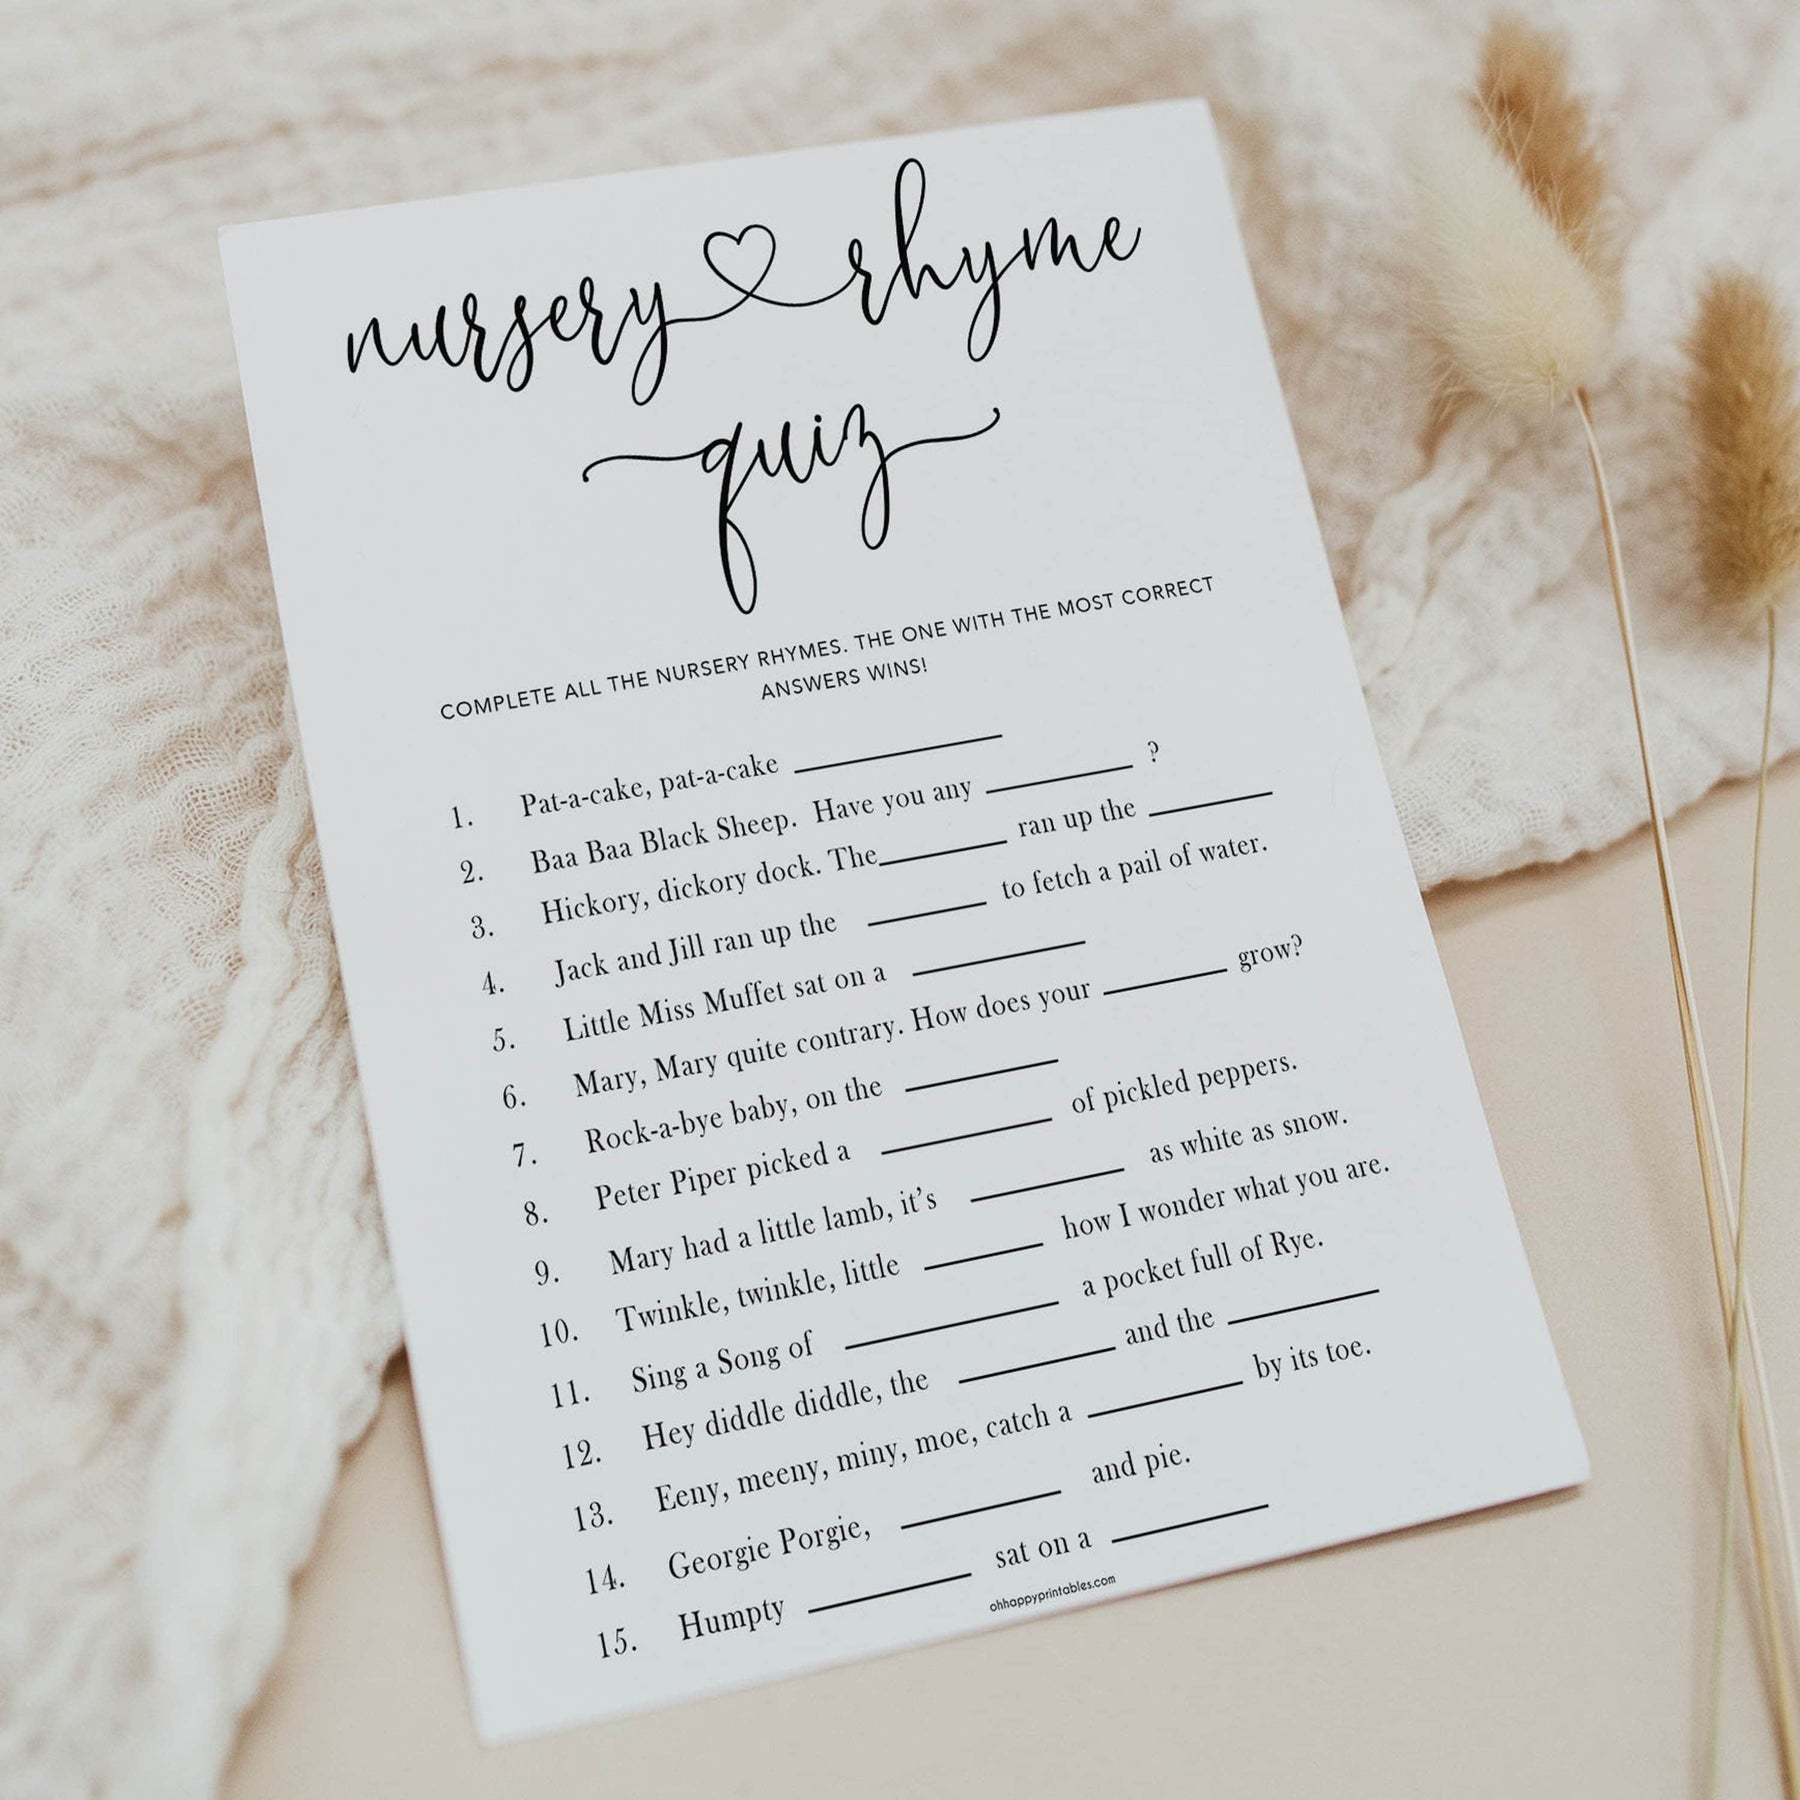 nursery rhyme
quiz
COMPLETE ALL THE NURSERY RHYMES. THE ONE WITH THE MOST CORRECT
ANSWERS WINS!
1. Pat-a-cake, pat-a-cake __________
2. Baa Baa Black Sheep. Have you any __________ ?
3. Hickory, dickory dock. The__________ ran up the __________
4. Jack and Jill ran up the __________ to fetch a pail of water.
5. Little Miss Muffet sat on a __________
6. Mary, Mary quite contrary. How does your __________ grow?
7. Rock-a-bye baby, on the __________
8. Peter Piper picked a __________ of pickled peppers.
9. Mary had a little lamb, it's __________ as white as snow.
10. Twinkle, twinkle, little __________ how I wonder what you are.
11. Sing a Song of __________ a pocket full of Rye.
12. Hey diddle diddle, the __________ and the __________
13. Eeny, meeny, miny, moe, catch a __________ by its toe.
14. Georgie Porgie, __________ and pie.
15. Humpty __________ sat on a __________
ohhappyprintables.com